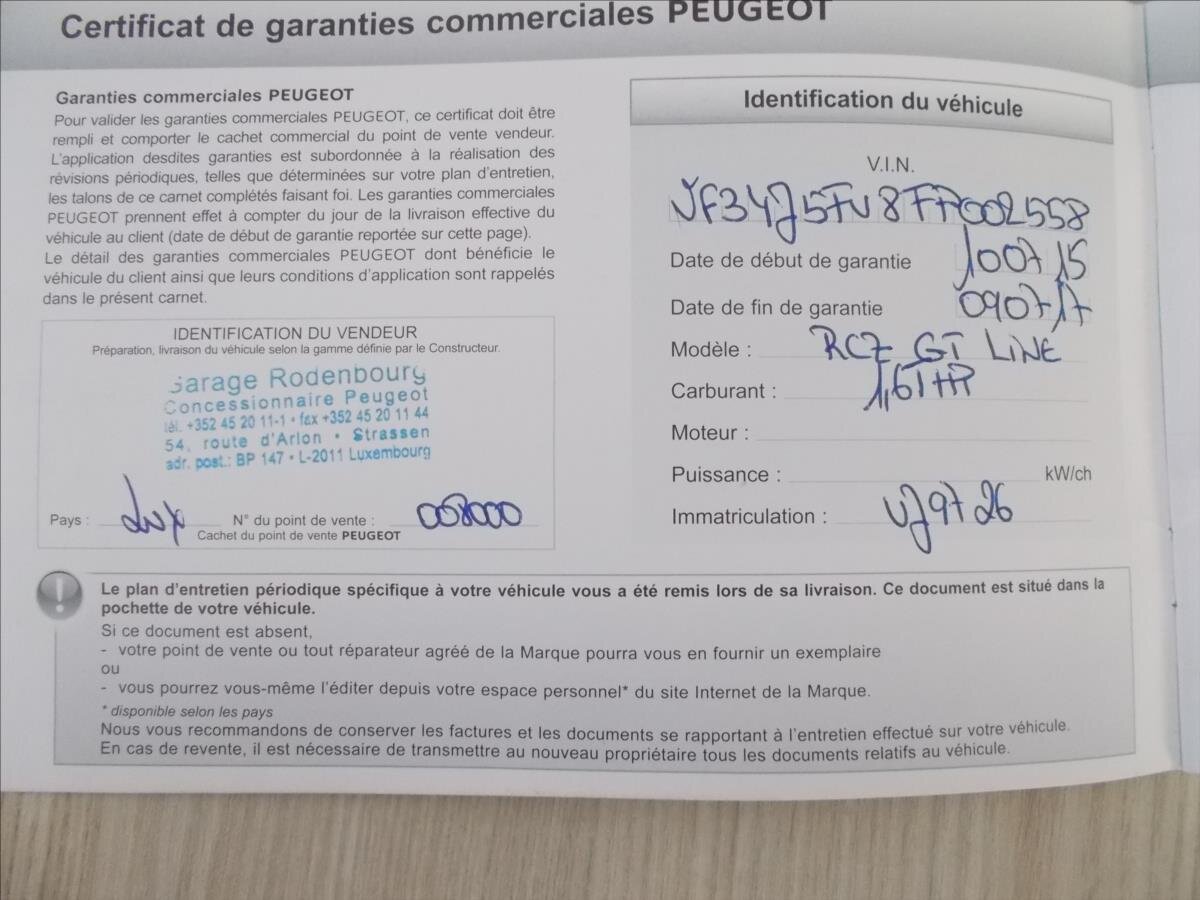 Certificat de garanties commerciales PEUGEOT
Garanties commerciales PEUGEOT
Pour valider les garanties commerciales PEUGEOT, ce certificat doit être
rempli et comporter le cachet commercial du point de vente vendeur.
L'application desdites garanties est subordonnée à la réalisation des
révisions périodiques, telles que déterminées sur votre plan d'entretien,
les talons de ce carnet complétés faisant foi. Les garanties commerciales
PEUGEOT prennent effet à compter du jour de la livraison effective du
véhicule au client (date de début de garantie reportée sur cette page).
Le détail des garanties commerciales PEUGEOT dont bénéficie le
véhicule du client ainsi que leurs conditions d'application sont rappelés
dans le présent carnet.
IDENTIFICATION DU VENDEUR
Préparation, livraison du véhicule selon la gamme définie par le Constructeur.
Garage Rodenbourg
Concessionnaire Peugeot
tél. +352 45 20 11-1 • fax +352 45 20 11 44
54, route d'Arlon • Strassen
adr. post.: BP 147 • L-2011 Luxembourg
Pays : Lux N° du point de vente : 008000
Cachet du point de vente PEUGEOT
Identification du véhicule
V.I.N.
VF34J5FV8FP002558
Date de début de garantie 1007/15
Date de fin de garantie 0907/17
Modèle : RCZ GT LINE
Carburant : 1,6THP
Moteur :
Puissance : kW/ch
Immatriculation : VJ9726
! Le plan d'entretien périodique spécifique à votre véhicule vous a été remis lors de sa livraison. Ce document est situé dans la
pochette de votre véhicule.
Si ce document est absent,
- votre point de vente ou tout réparateur agréé de la Marque pourra vous en fournir un exemplaire
ou
- vous pourrez vous-même l'éditer depuis votre espace personnel* du site Internet de la Marque.
* disponible selon les pays
Nous vous recommandons de conserver les factures et les documents se rapportant à l'entretien effectué sur votre véhicule.
En cas de revente, il est nécessaire de transmettre au nouveau propriétaire tous les documents relatifs au véhicule.